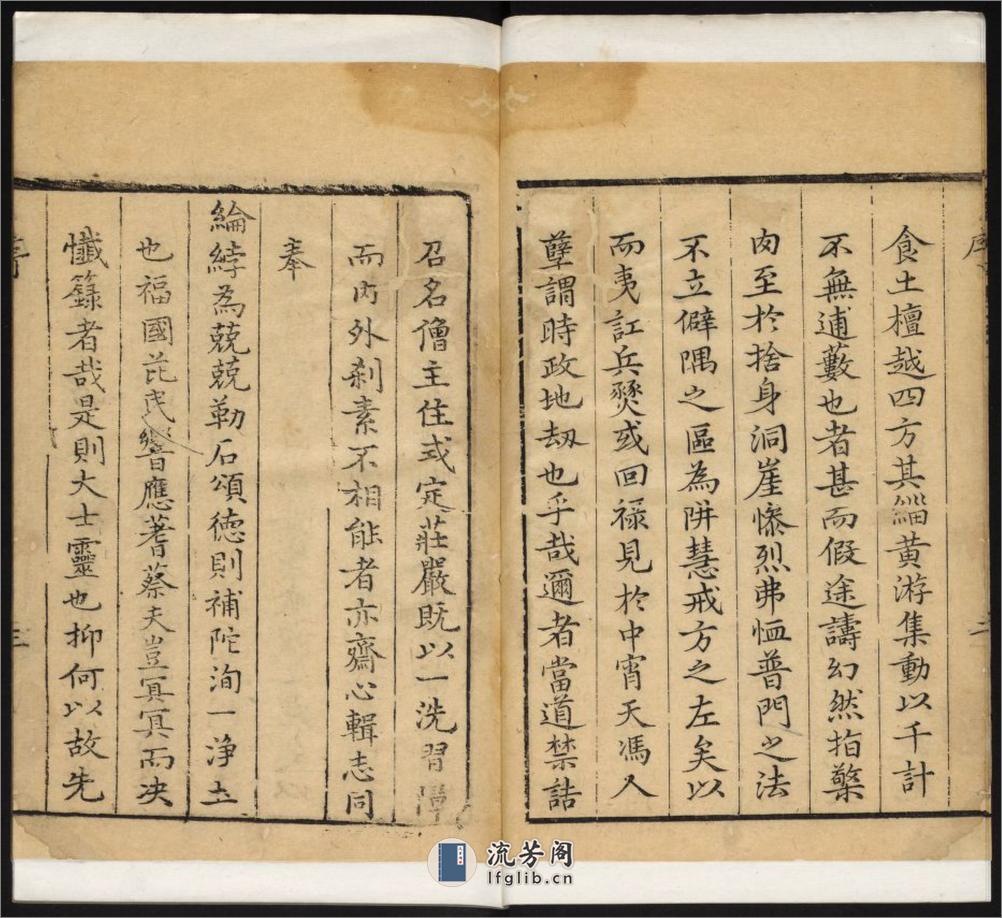 食土檀越四方其緇黃游集動以千計
不無逋藪也者甚而假途譸幻然指檠
肉至於捨身洞崖慘烈弗恤普門之法
不立僻隅之區為阱慧戒方之左矣以
而夷訌兵燹或回祿見於中宵天馮人
孽謂時政地劫也乎哉邇者當道禁詰
召名僧主住式定莊嚴既以一洗習障
而內外刹素不相能者亦齋心輯志同
奉
綸綍為兢兢勒石頌德則補陀洵一淨土
也福國芘民響應蓍蔡夫豈冥冥而决
懺籙者哉是則大士靈也抑何以故先
序
二
三
流芳阁
lfglib.cn